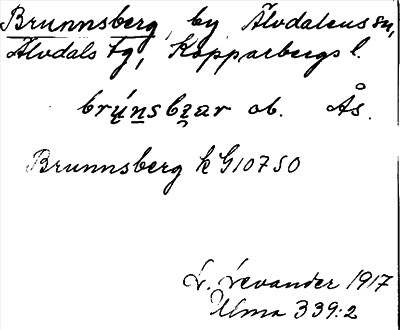 Brunnsberg, by Älvdalens sn,
Älvdals tg, Kopparbergs l.
ob. Ås.
Brunnsberg k G10750
L. Levander 1917
Ulma 339:2